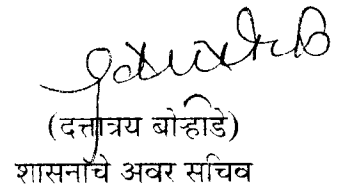 (दत्तात्रय बोऱ्हाडे)
शासनाचे अवर सचिव